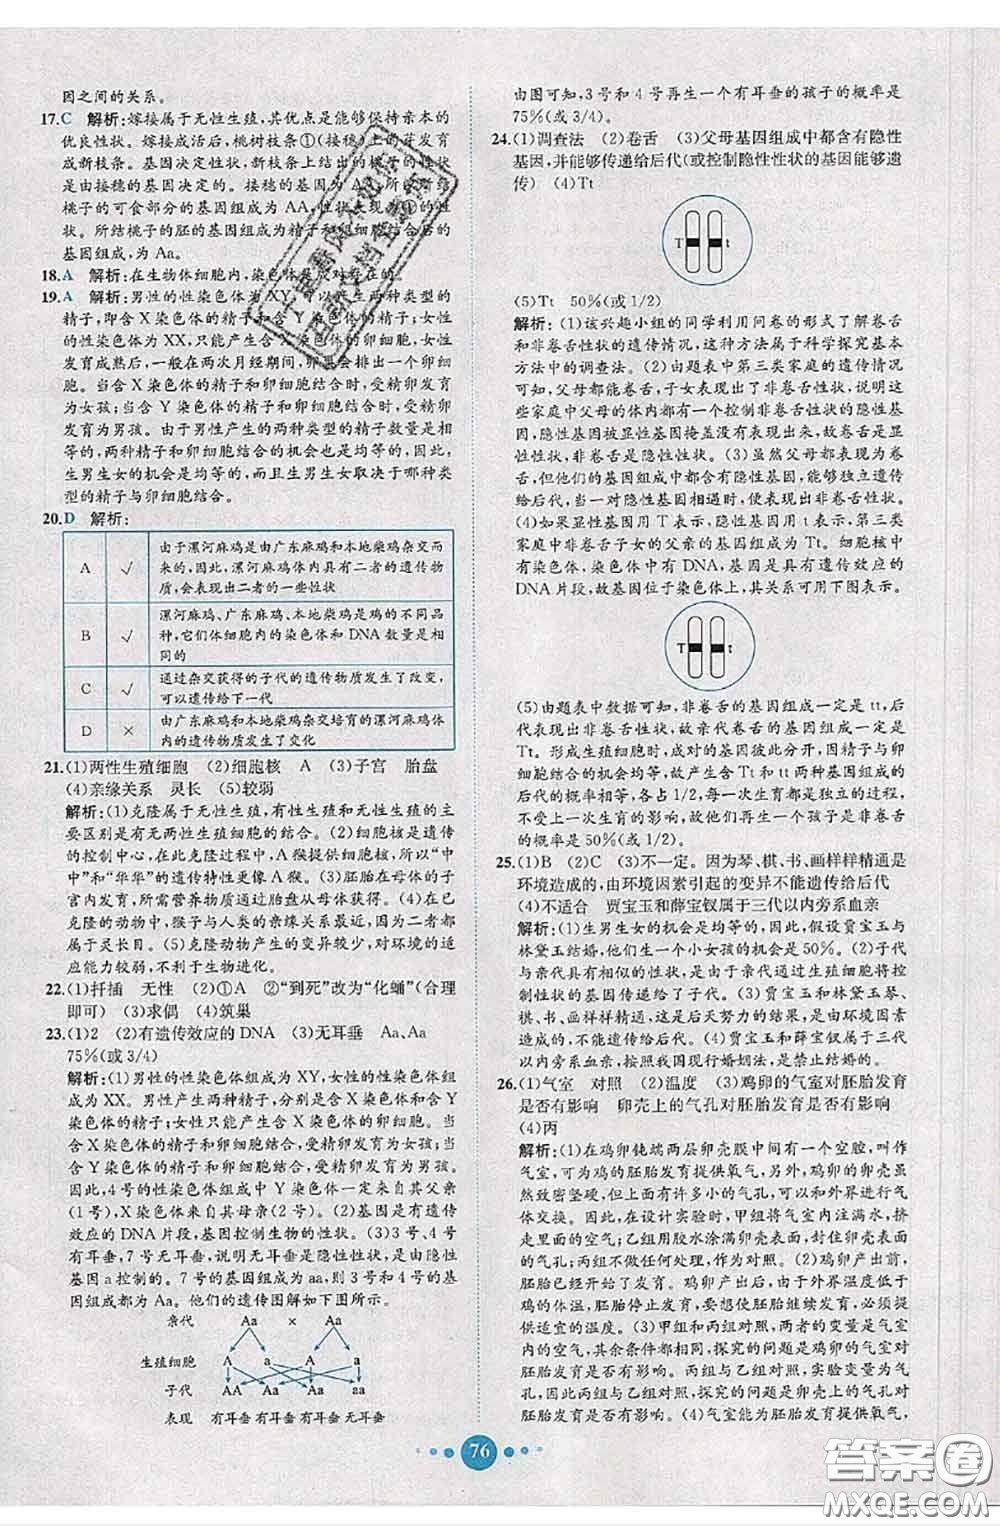 因之间的关系。
17.C 解析:嫁接属于无性生殖,其优点是能够保持亲本的
优良性状。嫁接成活后,桃树枝条①(接穗)上的芽发育
成新枝条。基因决定性状,新枝条上桃子的性状
是由接穗的基因决定的。接穗的基因为AA,所以所结
桃子的可食部分的基因组成为AA,性状表现为①的性
状。所结桃子的胚的基因组成,为Aa。
18.A 解析:在生物体细胞内,染色体是成对存在的。
19.A 解析:男性的性染色体为XY,可以产生两种类型的
精子,即含X染色体的精子和含Y染色体的精子;女性
的性染色体为XX,只能产生含X染色体的卵细胞。女性
发育成熟后,一般在两次月经期间,卵巢会排出一个卵细
胞。当含X染色体的精子和卵细胞结合时,受精卵发育
为女孩;当含Y染色体的精子和卵细胞结合时,受精卵
发育为男孩。由于男性产生的两种类型的精子数量是相
等的,两种精子和卵细胞结合的机会也是均等的,因此,
生男生女的机会是均等的,而且生男生女取决于哪种类
型的精子与卵细胞结合。
20.D 解析:
A √ 由于漯河麻鸡是由广东麻鸡和本地柴鸡杂交而
来的,因此,漯河麻鸡体内具有二者的遗传物
质,会表现出二者的一些性状
B √ 漯河麻鸡、广东麻鸡、本地柴鸡是鸡的不同品
种,它们体细胞内的染色体和DNA数量是相
同的
C √ 通过杂交获得的子代的遗传物质发生了改变,
可以遗传给下一代
D × 由广东麻鸡和本地柴鸡杂交培育的漯河麻鸡体
内的遗传物质发生了变化
21.(1)两性生殖细胞 (2)细胞核 A (3)子宫 胎盘
(4)亲缘关系 灵长 (5)较弱
解析:(1)克隆属于无性生殖,有性生殖和无性生殖的主
要区别是有无两性生殖细胞的结合。(2)细胞核是遗传
的控制中心,在此克隆过程中,A猴提供细胞核,所以“中
中”和“华华”的遗传特性更像A猴。(3)胚胎在母体的子
宫内发育,所需营养物质通过胎盘从母体获得。(4)在已
克隆的动物中,猴子与人类的亲缘关系最近,因为二者都
属于灵长目。(5)克隆动物产生的变异较少,对环境的适
应能力较弱,不利于生物进化。
22.(1)扦插 无性 (2)①A ②“到死”改为“化蛹”(合理
即可) (3)求偶 (4)筑巢
23.(1)2 (2)有遗传效应的DNA (3)无耳垂 Aa、Aa
75%(或3/4)
解析:(1)男性的性染色体组成为XY,女性的性染色体组
成为XX。男性产生两种精子,分别是含X染色体和含Y
染色体的精子;女性只产生一种含X染色体的卵细胞。
含X染色体的精子和卵细胞结合,受精卵发育成女孩;当
含Y染色体的精子和卵细胞结合,受精卵发育为男孩。
因此,4号的性染色体组成中Y染色体来自其父亲
(1号),X染色体来自其母亲(2号)。(2)基因是有遗传
效应的DNA片段,基因控制生物的性状。(3)3号、4号
有耳垂,7号无耳垂,说明无耳垂是隐性性状,是由隐性
基因a控制的。7号的基因组成为aa,则3号和4号的基
因组成都为Aa。他们的遗传图解如下图所示。
亲代 Aa × Aa
生殖细胞 A a A a
子代 AA Aa Aa aa
表现 有耳垂 有耳垂 有耳垂 无耳垂
由图可知,3号和4号再生一个有耳垂的孩子的概率是
75%(或3/4)。
24.(1)调查法 (2)卷舌 (3)父母基因组成中都含有隐性
基因,并能够传递给后代(或控制隐性性状的基因能够遗
传) (4)Tt
T t
(5)Tt 50%(或1/2)
解析:(1)该兴趣小组的同学利用问卷的形式了解卷舌
和非卷舌性状的遗传情况,这种方法属于科学探究基本
方法中的调查法。(2)由题表中第三类家庭的遗传情况
可知,父母都能卷舌,子女表现出了非卷舌性状,说明这
些家庭中父母的体内都有一个控制非卷舌性状的隐性基
因,隐性基因被显性基因掩盖没有表现出来,故卷舌是显
性性状,非卷舌是隐性性状。(3)虽然父母都表现为卷
舌,但其基因组成中都含有隐性基因,且隐性基因能够遗
传给后代,当一对隐性基因组合时,表现为非卷舌性状。
(4)如果显性基因用T表示,隐性基因用t表示,第三类
家庭中非卷舌子女的父亲的基因组成为Tt。细胞核中
有染色体,染色体中有DNA,基因是具有遗传效应的
DNA片段,故基因位于染色体上,其关系可用下图表示。
T t
(5)由题表中数据可知,非卷舌的基因组成一定是tt,后
代中出现非卷舌性状,故亲代卷舌的基因组成一定是
Tt。形成生殖细胞时,成对的基因彼此分开,因精子与卵
细胞结合的机会均等,故产生Tt和tt两种基因组成的
后代的概率相等,各占1/2,每一次生育都是独立的过程,
不受上一次生育的影响,故再生一个孩子是非卷舌
的概率是50%(或1/2)。
25.(1)B (2)C (3)不一定。因为琴、棋、书、画样样精通是
环境造成的,由环境因素引起的变异不能遗传给后代
(4)不适合 贾宝玉和薛宝钗属于三代以内旁系血亲
解析:(1)生男生女的机会是均等的,因此,假设贾宝玉与
林黛玉结婚,他们生一个小女孩的机会是50%。(2)子代
与亲代具有相似的性状,是由于亲代通过生殖细胞将控
制性状的基因传递给了子代。(3)贾宝玉和林黛玉琴、
棋、书、画样样精通,这是后天努力的结果,是由环境因素
造成的,不能遗传给后代。(4)贾宝玉和薛宝钗属于三代
以内旁系血亲,按照我国现行婚姻法,是禁止结婚的。
26.(1)气室 对照 (2)温度 (3)鸡卵的气室对胚胎发育
是否有影响 卵壳上的气孔对胚胎发育是否有影响
(4)丙
解析:(1)在鸡卵钝端两层卵壳膜中间有一个空腔,叫作
气室,可以为鸡的胚胎发育提供氧气,另外,鸡卵的卵壳虽
然致密坚硬,但上面有许多小的气孔,可以和外界进行气
体交换。因此,在设计实验时,甲组将气室注满水,挤
走里面的空气;乙组用胶水涂满卵壳表面,封住卵壳上的
气孔;丙组不做任何处理,作为对照。(2)鸡卵产出前,
胚胎已经开始了发育。鸡卵产出后,由于外界温度低于
鸡的体温,胚胎停止发育,要使胚胎继续发育,必须
提供适宜的温度。(3)甲组和丙组对照,两者的变量是气室的
空气,其余条件都相同,探究的问题是鸡卵的气室对胚胎
发育是否有影响。丙组与乙组对照,实验变量是卵壳上
的气孔,因此,丙组与乙组对照,探究的问题是卵壳上的气孔对
胚胎发育是否有影响。(4)气室能为胚胎发育提供氧气,
76
答案圈
MXQE.COM